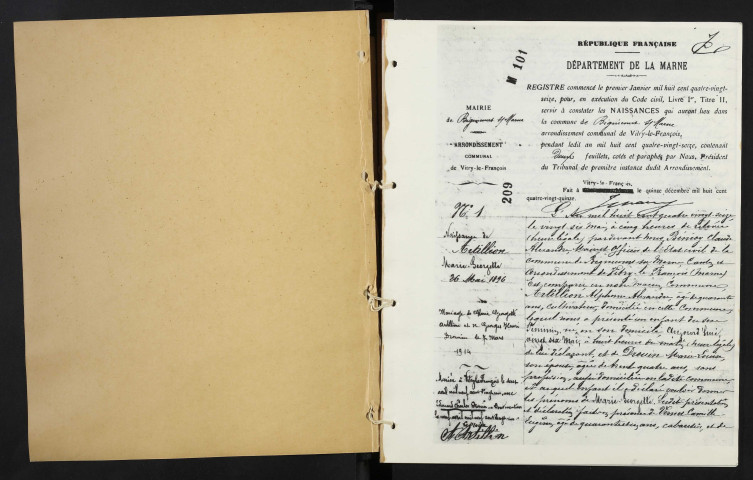 RÉPUBLIQUE FRANÇAISE
DÉPARTEMENT DE LA MARNE
M 101
REGISTRE commencé le premier Janvier mil huit cent quatre-vingt-
seize, pour, en exécution du Code civil, Livre Ier, Titre II,
servir à constater les NAISSANCES qui auront lieu dans
la commune de Bignicourt s/ Marne
arrondissement communal de Vitry-le-François,
pendant ledit an mil huit cent quatre-vingt-seize, contenant
feuillets, cotés et paraphés par Nous, Président
du Tribunal de première instance dudit Arrondissement.
MAIRIE
de Bignicourt s/ Marne
ARRONDISSEMENT
COMMUNAL
de Vitry-le-François
209
Vitry-le-François,
Fait à le quinze décembre mil huit cent
quatre-vingt-quinze.
N° 1
Naissance de
Artillion
Marie Georgette
26 Mai 1896
Mariage de Marie Georgette
Artillion et de Georges Henri
du 7 Mars
1914
L'An mil huit cent quatre vingt seize
le vingt six mai, à cinq heures de
(heure légale) pardevant nous, Claude
Alexandre, Officier de l'état civil de la
commune de Bignicourt sur Marne, Canton et
arrondissement de Vitry le François (Marne)
Est comparu en notre maison Commune,
Artillion Alphonse Alexandre, âgé de quarante
ans, cultivateur, domicilié en cette Commune
lequel nous a présenté un enfant du sexe
féminin, né en son domicile Aujourd'hui
vingt six Mai, à huit heures du matin, (heure légale)
de lui déclarant, et de Marie Louise
son épouse, âgée de trente quatre ans, sans
profession, aussi domiciliée en ladite commune
et auquel enfant il a déclaré vouloir donner
les prénoms de Marie Georgette. Lesdites présentation
et déclaration faites en présence de Camille
Eugène, âgé de quarante ans, cabaretier, et de
Artillion